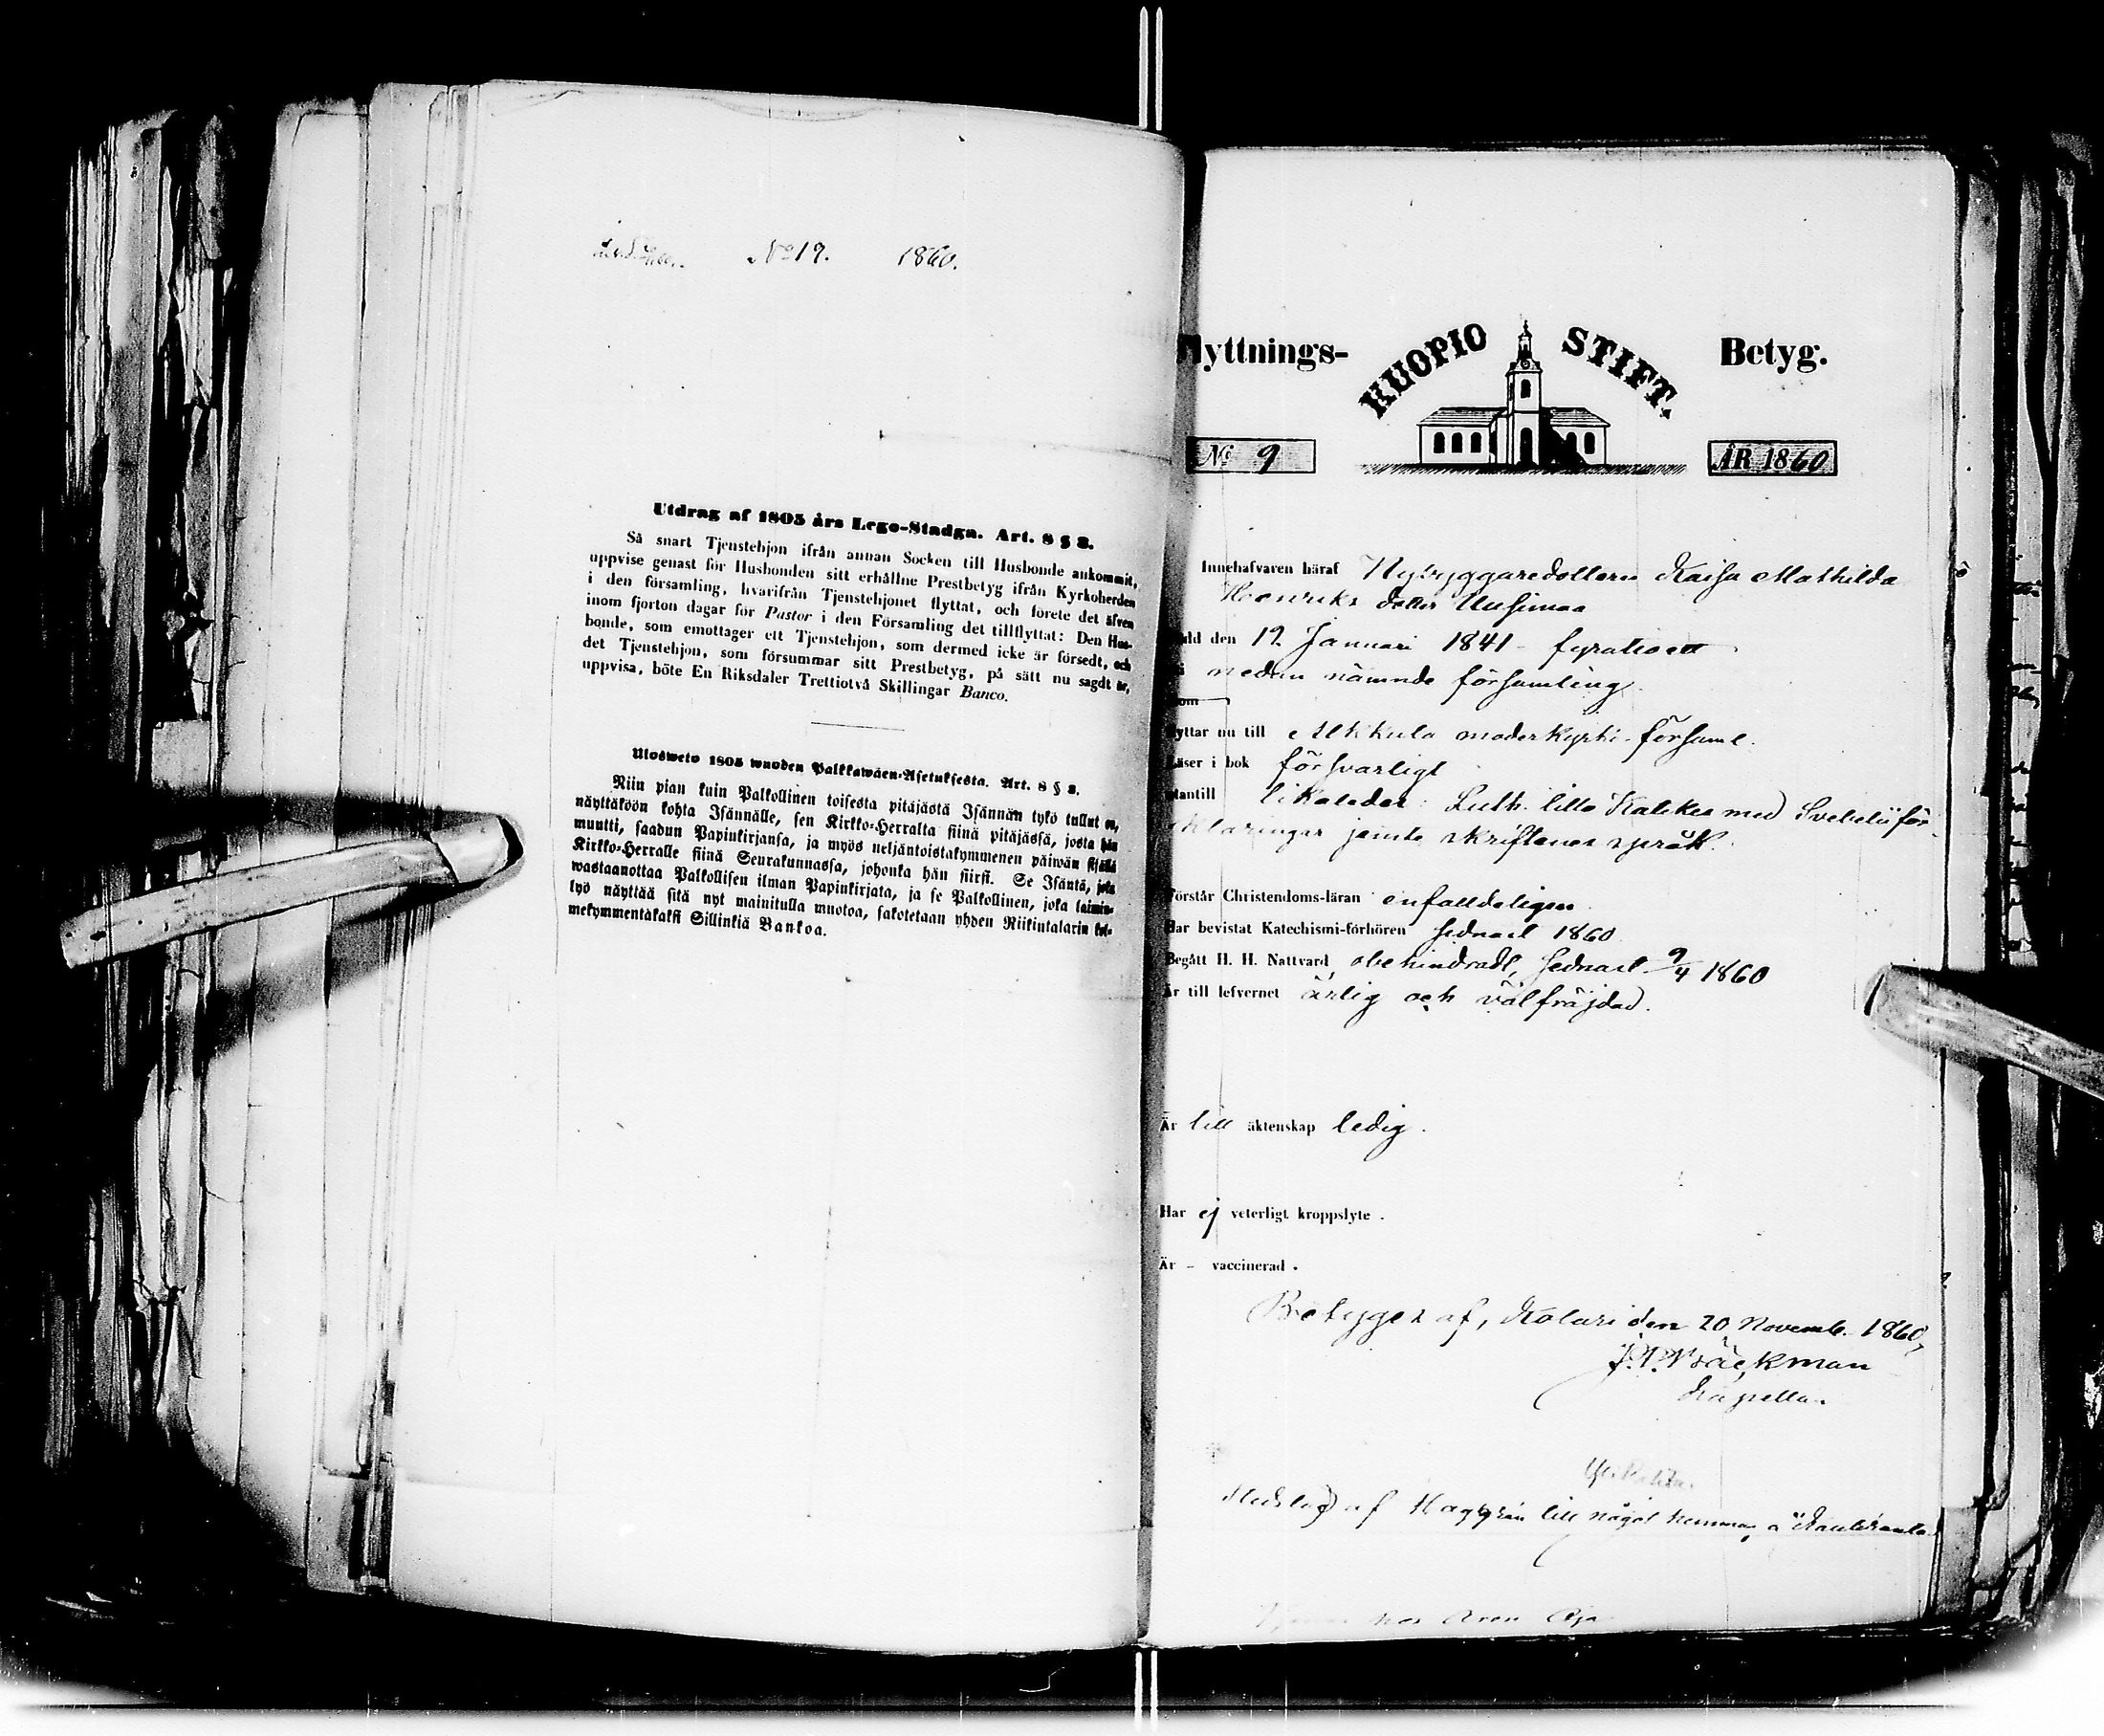 No 19. 1860.
Utdrag af 1805 års Lego-Stadga. Art. 8 § 8.
Så snart Tjenstehjon ifrån annan Socken till Husbonde ankommit,
uppvise genast för Husbonden sitt erhållne Prestbetyg ifrån Kyrkoherden
i den församling, hvarifrån Tjenstehjonet flyttat, och förete det äfven
inom fjorton dagar för Pastor i den Församling det tillflyttat: Den Hus-
bonde, som emottager ett Tjenstehjon, som dermed icke är försedt, och
det Tjenstehjon, som försummar sitt Prestbetyg, på sätt nu sagdt är,
uppvisa, böte En Riksdaler Trettiotvå Skillingar Banco.
Ulosweto 1805 wuoden Palkkawäen-Asetuksesta. Art. 8 § 8.
Niin pian kuin Palkollinen toisesta pitäjästä Isännän tykö tullut on,
näyttäköön kohta Isännälle, sen Kirkko-Herralta siinä pitäjässä, josta hän
muutti, saadun Papinkirjansa, ja myös neljäntoistakymmenen päiwän sisällä
Kirkko-Herralle siinä Seurakunnassa, johonka hän siirsi. Se Isäntä, joka
wastaanottaa Palkollisen ilman Papinkirjata, ja se Palkollinen, joka laimin-
lyö näyttää sitä nyt mainitulla muotoa, sakotetaan yhden Riikintalarin kol-
mekymmentäkaksi Sillinkiä Bankoa.
Flyttnings- KUOPIO STIFT. Betyg.
No 9 ÅR 1860
Innehafvaren häraf Nybyggaredottern Kaisa Mathilda
Henriks dotter Uusimaa
född den 19 Januari 1841 - fyrationett
i nedan nämnde församling.
som
flyttar nu till Alkkula moderkyrko-församl.
Läser i bok försvarligt
utantill likaledes: Luth. lilla Katekes med Svebelii för-
klaringar jemte skriftenes språk.
Förstår Christendoms-läran enfaldeligen
Har bevistat Katechismi-förhören sednast 1860
Begått H. H. Nattvard obehindradt, sednast 9/4 1860
Är till lefvernet ärlig och välfräjdad.
Är till äktenskap ledig.
Har ej veterligt kroppslyte.
Är - vaccinerad.
Betyges af, Kolari den 20 Novemb. 1860,
J. P. Bäckman
Kapellan.
af till något hemman
hos